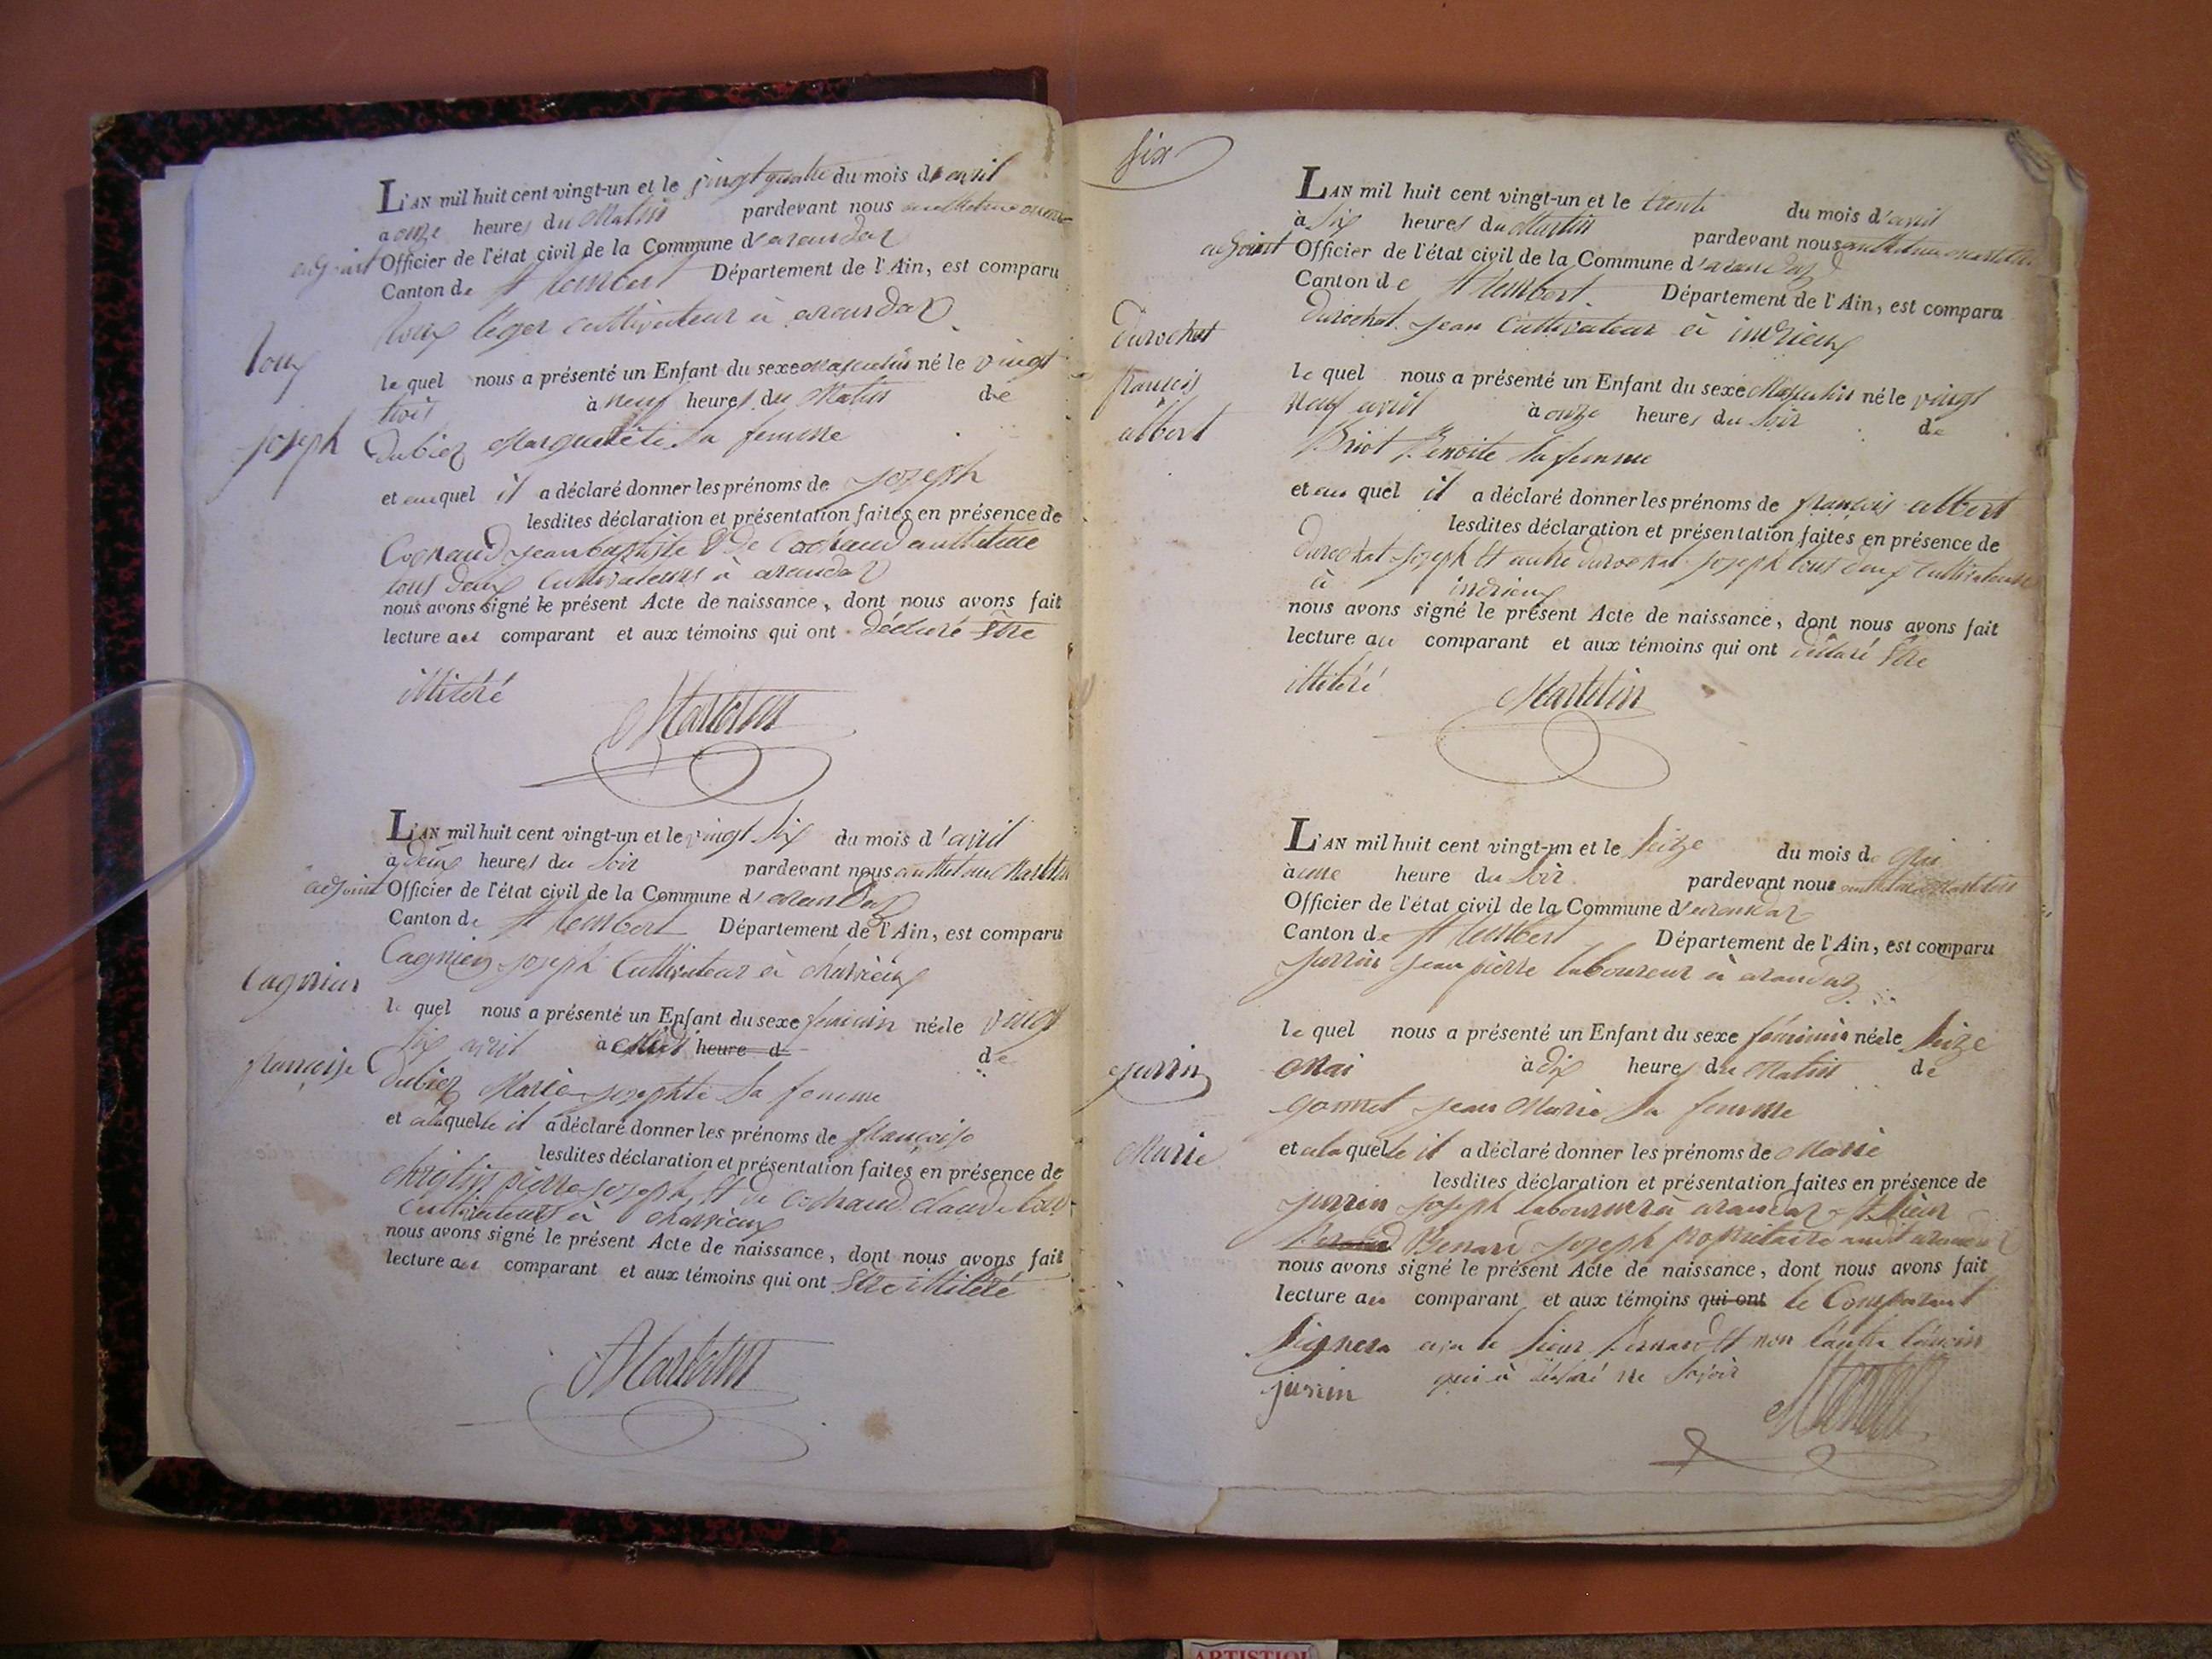 L'AN mil huit cent vingt-un et le vingt quatre du mois d'avril
à onze heures du Matin pardevant nous anthelme
adjoint Officier de l'état civil de la Commune d'arandaz
Canton de St Rembert Département de l'Ain, est comparu
Loup léger cultivateur à arandaz
Loup
le quel nous a présenté un Enfant du sexe Masculin né le vingt
trois à neuf heures du Matin de
Joseph
Dubiez Marguerite sa femme
et au quel il a déclaré donner les prénoms de Joseph
lesdites déclaration et présentation faites en présence de
Cochaud jean baptiste & de Cochaud anthelme
tous deux cultivateurs à arandaz
nous avons signé le présent Acte de naissance, dont nous avons fait
lecture au comparant et aux témoins qui ont déclaré être
illitéré
Martelin
L'AN mil huit cent vingt-un et le vingt six du mois d'avril
à deux heures du soir pardevant nous anthelme Martelin
adjoint Officier de l'état civil de la Commune d'arandaz
Canton de St Rembert Département de l'Ain, est comparu
Cagnien joseph Cultivateur à charvieux
Cagnien
le quel nous a présenté un Enfant du sexe féminin née le vingt
six avril à Midi heure d de
françoise
Dubiez Marie josephte sa femme
et à la quelle il a déclaré donner les prénoms de françoise
lesdites déclaration et présentation faites en présence de
pierre joseph, et de Cochaud claude
Cultivateurs à charvieux
nous avons signé le présent Acte de naissance, dont nous avons fait
lecture au comparant et aux témoins qui ont être illitéré
Martelin
six
L'AN mil huit cent vingt-un et le trente du mois d'avril
à six heures du Matin pardevant nous anthelme Martelin
adjoint Officier de l'état civil de la Commune d'arandaz
Canton de St Rembert Département de l'Ain, est comparu
Durochat jean Cultivateur à indrieux
Durochat
françois
albert
le quel nous a présenté un Enfant du sexe Masculin né le vingt
neuf avril à onze heures du soir de
Briot Benoite sa femme
et au quel il a déclaré donner les prénoms de françois albert
lesdites déclaration et présentation faites en présence de
Durochat joseph et autre durochat joseph tous deux cultivateurs
à indrieux
nous avons signé le présent Acte de naissance, dont nous avons fait
lecture au comparant et aux témoins qui ont déclaré être
illitéré
Martelin
L'AN mil huit cent vingt-un et le seize du mois de Mai
à une heure du soir pardevant nous anthelme Martelin
Officier de l'état civil de la Commune d'arandaz
Canton de St Rembert Département de l'Ain, est comparu
jurrin jean pierre laboureur à arandaz
le quel nous a présenté un Enfant du sexe féminin née le seize
Mai à dix heures du Matin de
jurrin
gonnet jean Marie sa femme
Marie
et à la quelle il a déclaré donner les prénoms de Marie
lesdites déclaration et présentation faites en présence de
jurrin joseph laboureur à arandaz et sieur
Benard joseph propriétaire audit arandaz
nous avons signé le présent Acte de naissance, dont nous avons fait
lecture au comparant et aux témoins qui ont le Comparant
signera avec le sieur Bernard et non l'autre témoin
jurrin qui à déclaré ne savoir
Martelin
ARTISTIQU